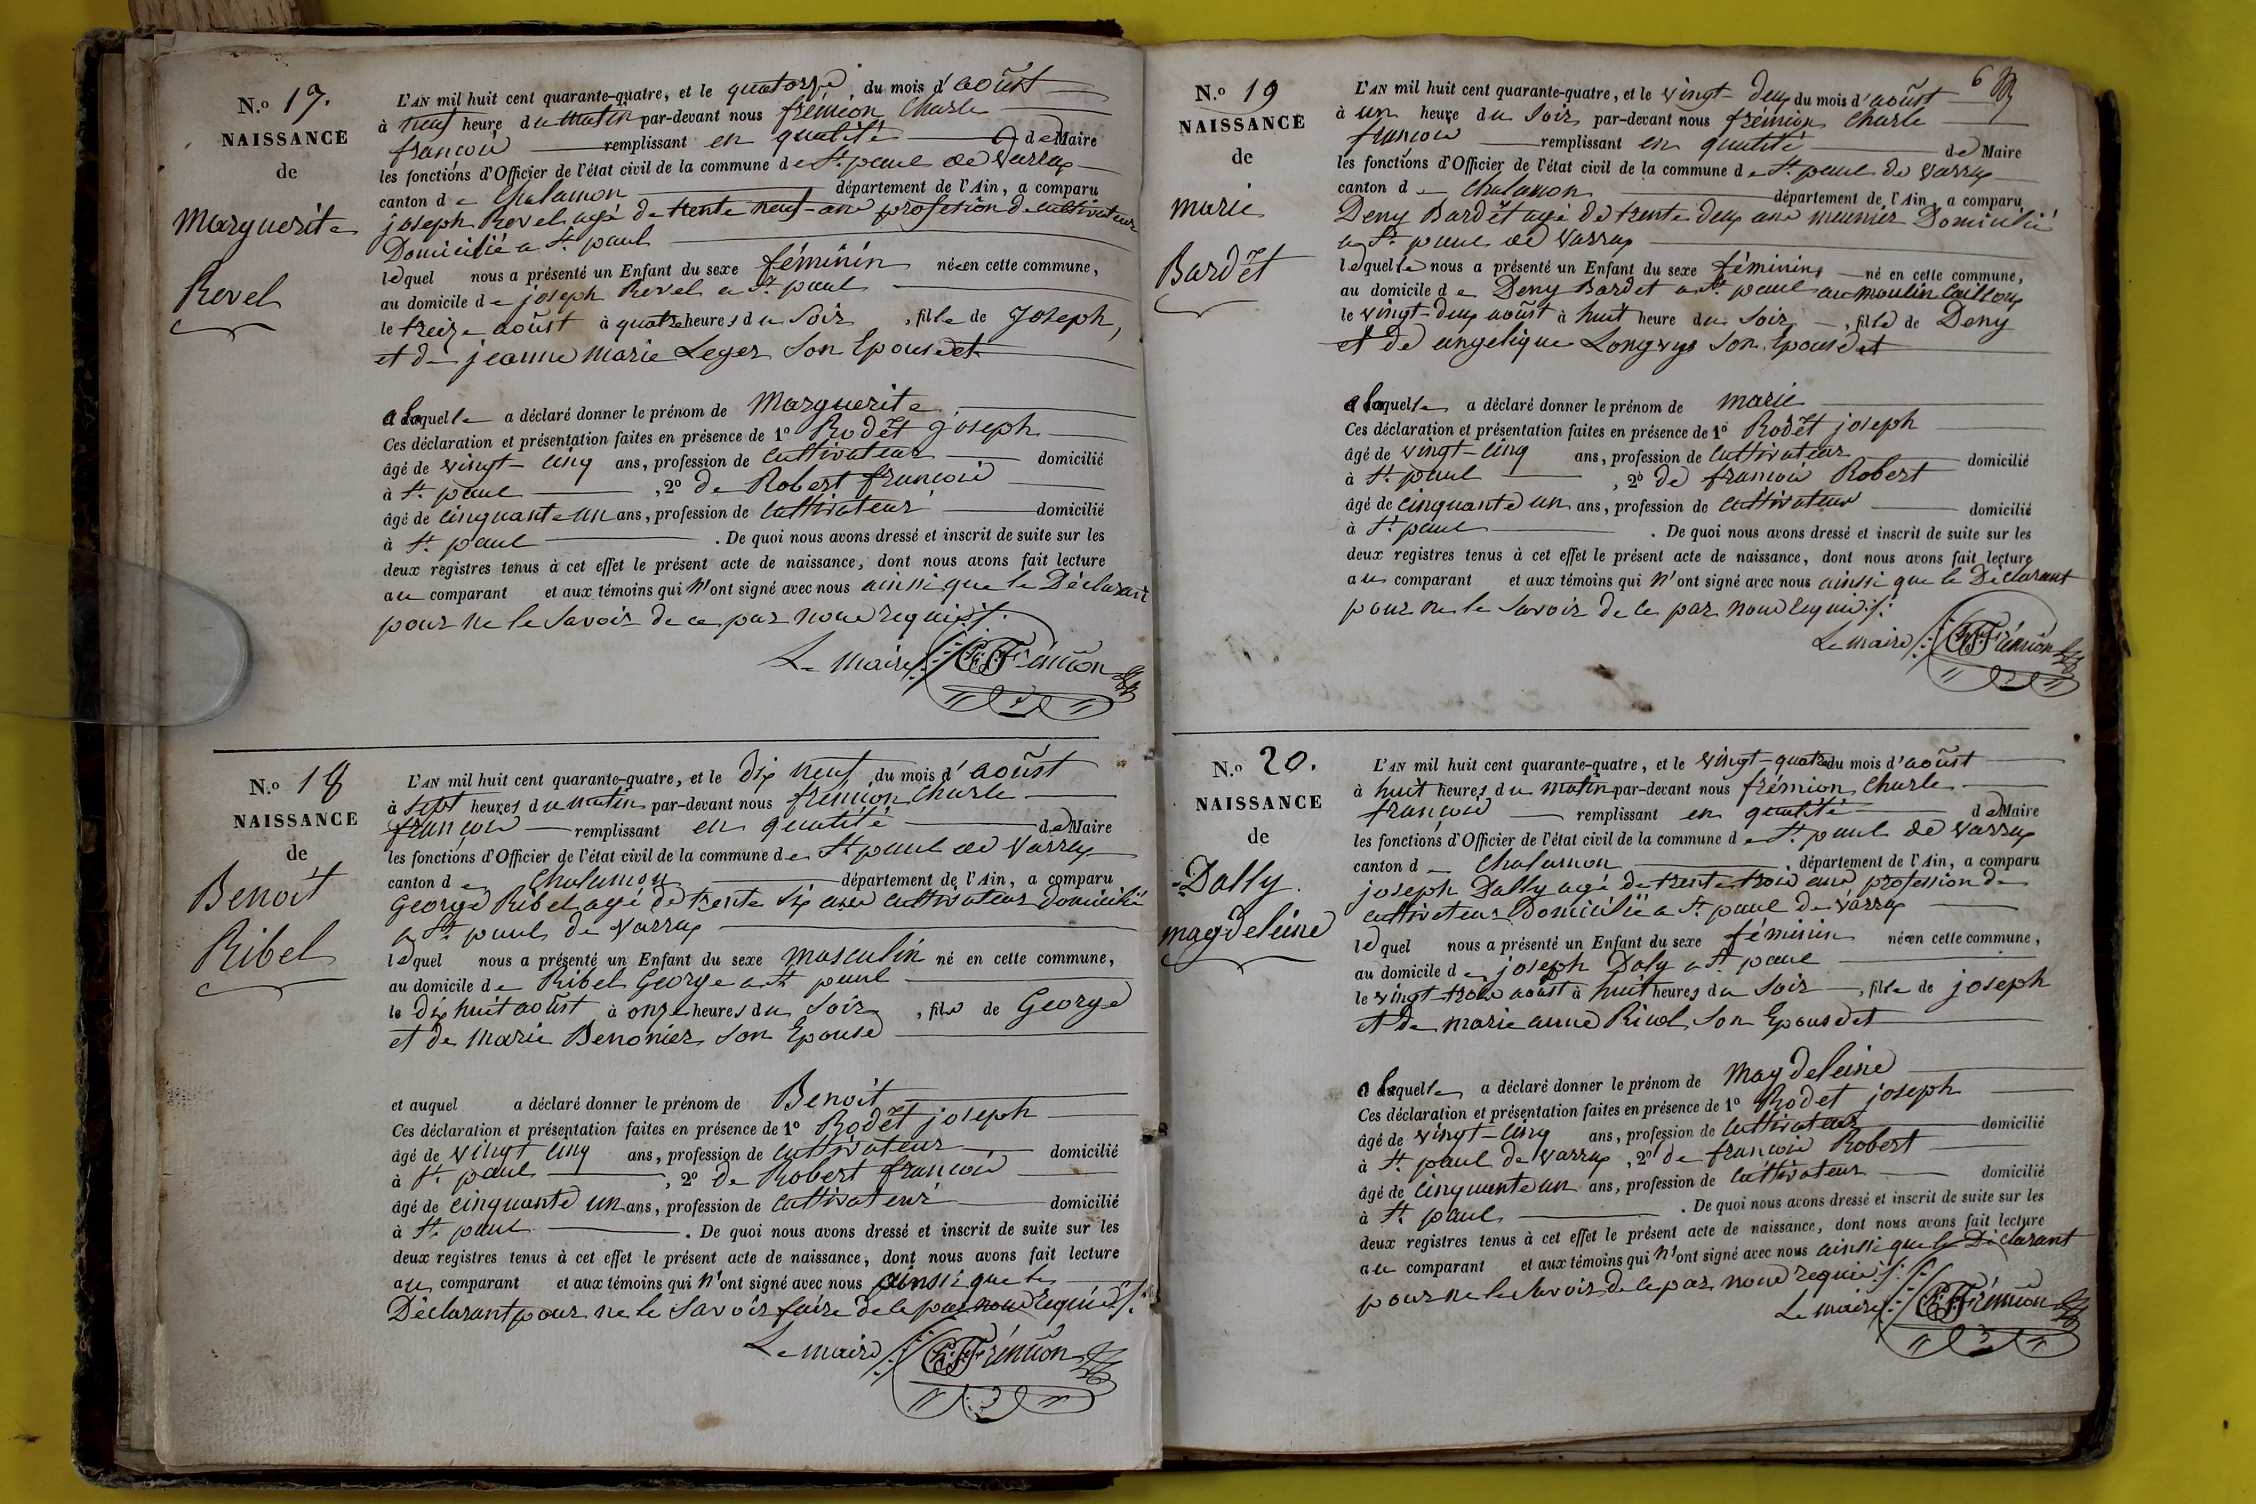 N.o 17.
NAISSANCE
de
Marguerite
Revel
L'AN mil huit cent quarante-quatre, et le quatorze, du mois d'août
à neuf heure du matin par-devant nous frémion Charle
françois remplissant en qualité de Maire
les fonctions d'Officier de l'état civil de la commune de St. paul de Varrax
canton de Chalamon département de l'Ain, a comparu
joseph Revel agé de trente neuf ans profession de cultivateur
Domicilié a St. paul
lequel nous a présenté un Enfant du sexe féminin née en cette commune,
au domicile de joseph Revel a St. paul
le treize août à quatre heures du Soir, fille de Joseph,
et de jeanne marie Leger Son Epouse et
a laquelle a déclaré donner le prénom de Marguerite
Ces déclaration et présentation faites en présence de 1o Rodet joseph
âgé de vingt-cinq ans, profession de cultivateur domicilié
à St. paul, 2o de Robert françois
âgé de cinquante un ans, profession de cultivateur domicilié
à St. paul. De quoi nous avons dressé et inscrit de suite sur les
deux registres tenus à cet effet le présent acte de naissance, dont nous avons fait lecture
au comparant et aux témoins qui n'ont signé avec nous ainssi que le Déclarant
pour ne le Savoir de ce par nous requis ./.
Le maire Ch. F. Frémion
N.o 18
NAISSANCE
de
Benoit
Ribel
L'AN mil huit cent quarante-quatre, et le dix neuf, du mois d'août
à sept heures du matin par-devant nous frémion Charle
françois remplissant en qualité de Maire
les fonctions d'Officier de l'état civil de la commune de St. paul de Varrax
canton de Chalamon département de l'Ain, a comparu
George Ribel agé de trente six ans cultivateur Domicilié
a St. paul de Varrax
lequel nous a présenté un Enfant du sexe masculin né en cette commune,
au domicile de Ribel George a St. paul
le dix huit août à onze heures du Soir, fils de George
et de Marie Benonier Son Epouse
et auquel a déclaré donner le prénom de Benoit
Ces déclaration et présentation faites en présence de 1o Rodet joseph
âgé de vingt cinq ans, profession de cultivateur domicilié
à St. paul, 2o de Robert françois
âgé de cinquante un ans, profession de cultivateur domicilié
à St. paul. De quoi nous avons dressé et inscrit de suite sur les
deux registres tenus à cet effet le présent acte de naissance, dont nous avons fait lecture
au comparant et aux témoins qui n'ont signé avec nous ainssi que le
Déclarant pour ne le Savoir faire de ce par nous requis ./.
Le maire Ch. F. Frémion
6
N.o 19
NAISSANCE
de
marie
Bardet
L'AN mil huit cent quarante-quatre, et le vingt-deux du mois d'août
à un heure du Soir par-devant nous frémion Charle
françois remplissant en qualité de Maire
les fonctions d'Officier de l'état civil de la commune de St. paul de Varrax
canton de Chalamon département de l'Ain, a comparu
Deny Bardet agé de trente deux ans meunier Domicilié
a St. paul de Varrax
lequel nous a présenté un Enfant du sexe féminin né en cette commune,
au domicile de Deny Bardet a St. paul au moulin Cailloux
le vingt-deux août à huit heure du Soir, fille de Deny
et de angelique Longvys Son Epouse et
a laquelle a déclaré donner le prénom de marie
Ces déclaration et présentation faites en présence de 1o Rodet joseph
âgé de vingt-cinq ans, profession de cultivateur domicilié
à St. paul, 2o de françois Robert
âgé de cinquante un ans, profession de cultivateur domicilié
à St. paul. De quoi nous avons dressé et inscrit de suite sur les
deux registres tenus à cet effet le présent acte de naissance, dont nous avons fait lecture
au comparant et aux témoins qui n'ont signé avec nous ainssi que le Déclarant
pour ne le Savoir de ce par nous requis ./.
Le maire Ch. F. Frémion
N.o 20.
NAISSANCE
de
Dally
magdeleine
L'AN mil huit cent quarante-quatre, et le vingt-quatre du mois d'août
à huit heures du matin par-devant nous frémion Charle
françois remplissant en qualité de Maire
les fonctions d'Officier de l'état civil de la commune de St. paul de Varrax
canton de Chalamon, département de l'Ain, a comparu
joseph Dally agé de trente trois ans profession de
cultivateur Domicilié a St. paul de Varrax
lequel nous a présenté un Enfant du sexe féminin née en cette commune,
au domicile de joseph Daly a St. paul
le vingt-trois août à huit heures du Soir, fille de joseph
et de marie anne Son Epouse et
a laquelle a déclaré donner le prénom de Magdeleine
Ces déclaration et présentation faites en présence de 1o Rodet joseph
âgé de vingt-cinq ans, profession de cultivateur domicilié
à St. paul de varrax, 2o de françois Robert
âgé de cinquante un ans, profession de cultivateur domicilié
à St. paul. De quoi nous avons dressé et inscrit de suite sur les
deux registres tenus à cet effet le présent acte de naissance, dont nous avons fait lecture
au comparant et aux témoins qui n'ont signé avec nous ainssi que le Déclarant
pour ne le Savoir de ce par nous requis ./.
Le maire Ch. F. Frémion